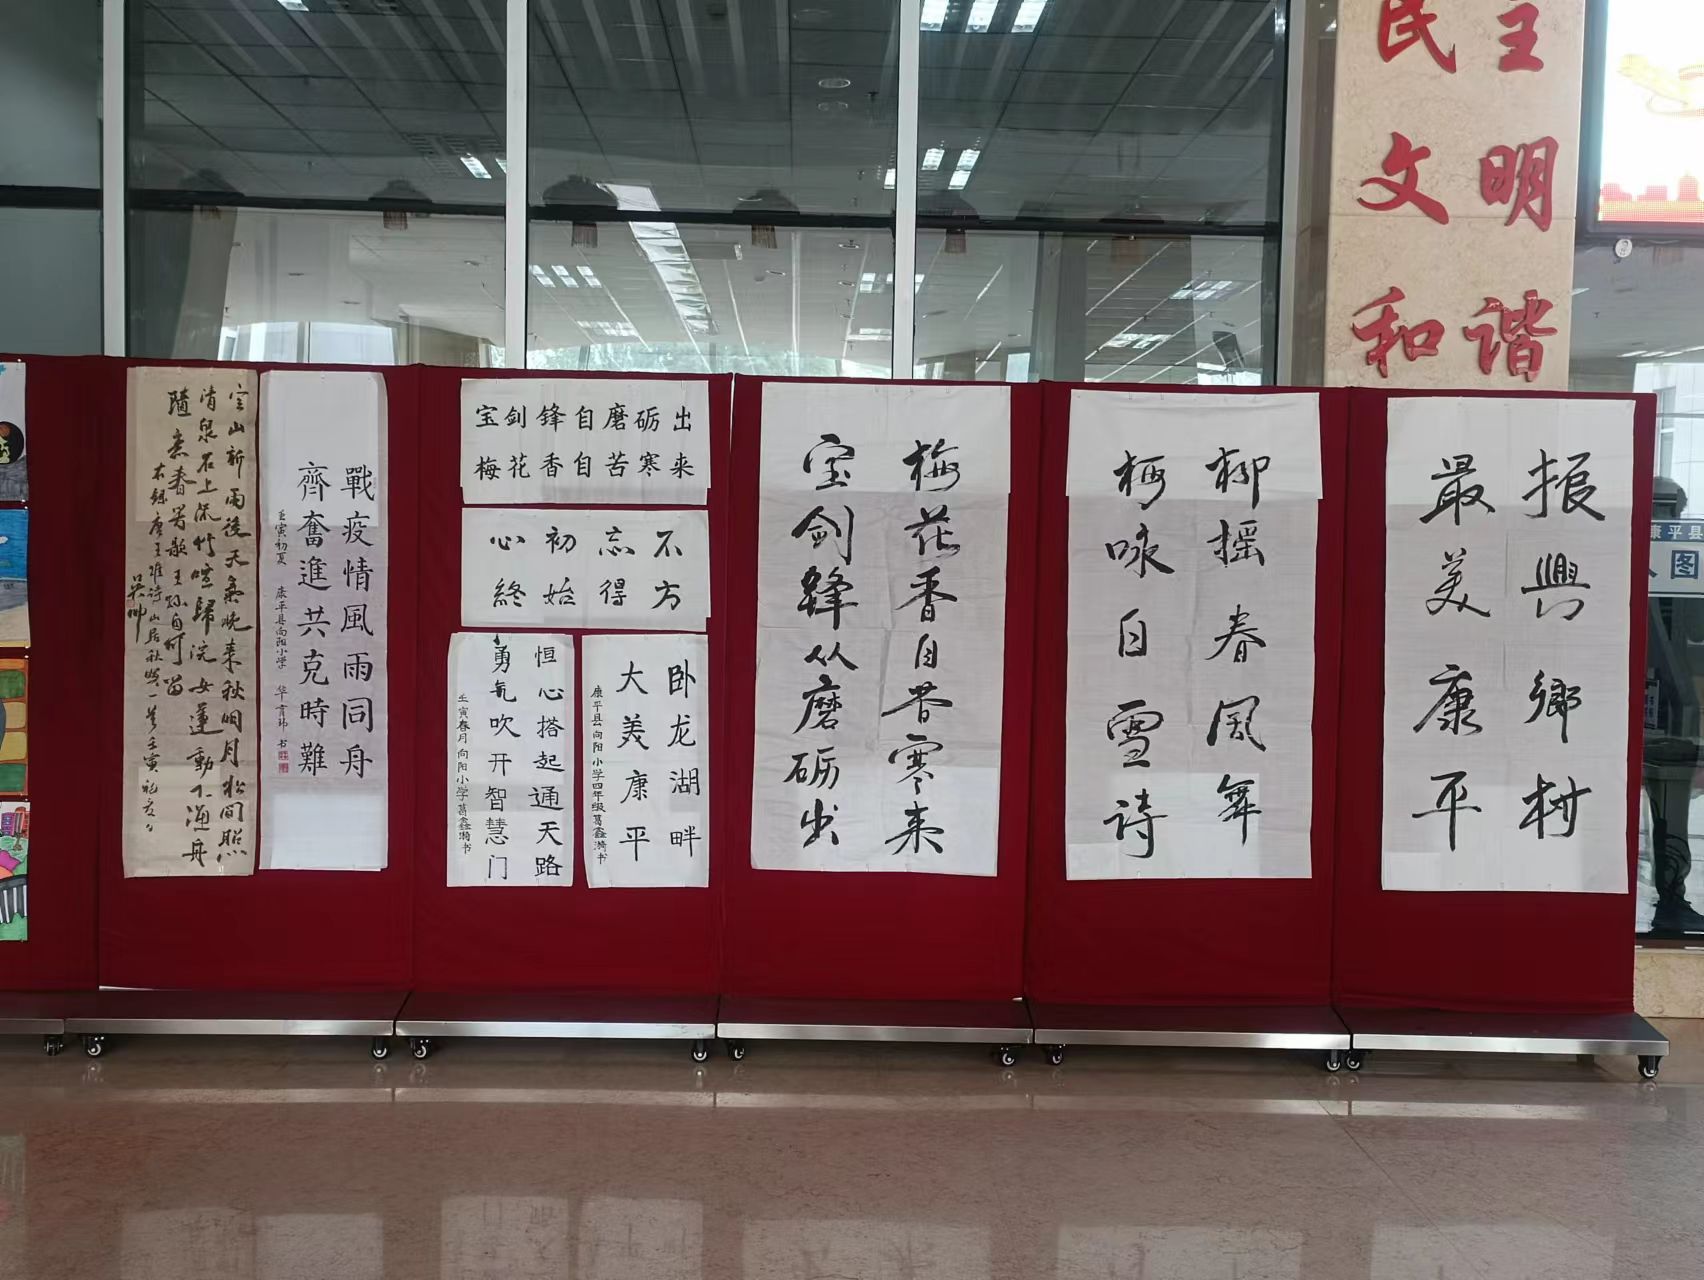 民主
文明
和谐
空山新雨後天氣晚来秋明月松间照
清泉石上流竹喧歸浣女蓮動下漁舟
隨意春芳歇王孫自可留
右録唐王维诗山居秋暝一首壬寅
吴帅
戰疫情風雨同舟
齊奮進共克時難
壬寅初夏 康平县向阳小学 华育玮 书
宝剑锋自磨砺出
梅花香自苦寒来
不忘初心
方得始終
卧龙湖畔
大美康平
康平县向阳小学四年级葛鑫漪书
恒心搭起通天路
勇氣吹开智慧门
壬寅春月向阳小学葛鑫漪书
梅花香自苦寒来
宝剑鋒从磨砺出
柳摇春风舞
梅咏自雪诗
振興鄉村
最美康平
康平县
图